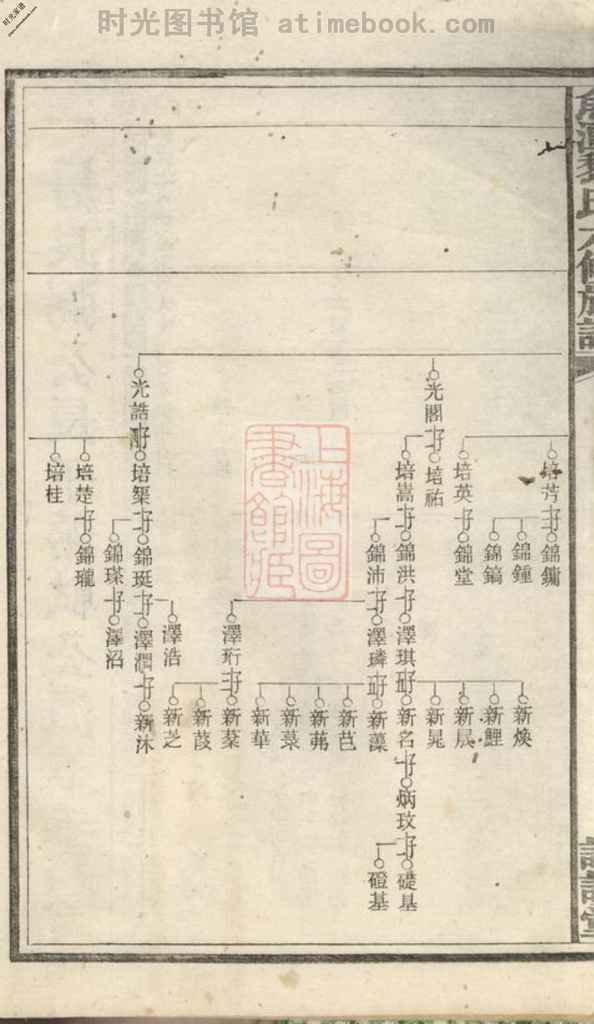 时光图书馆 atimebook.com
时光家谱
六修族譜
光閣
光誥
培芳
培英
培祐
培嵩
培築
培楚
培桂
錦鏞
錦鍾
錦鎬
錦堂
錦洪
錦沛
錦珽
錦瑹
錦瓏
澤琪
澤璘
澤珩
澤浩
澤潤
澤沼
新煥
新鯉
新晟
新晃
新名
新藻
新芭
新茀
新菉
新華
新棻
新葭
新芝
新沐
炳玟
礎基
磴基
上海圖書館